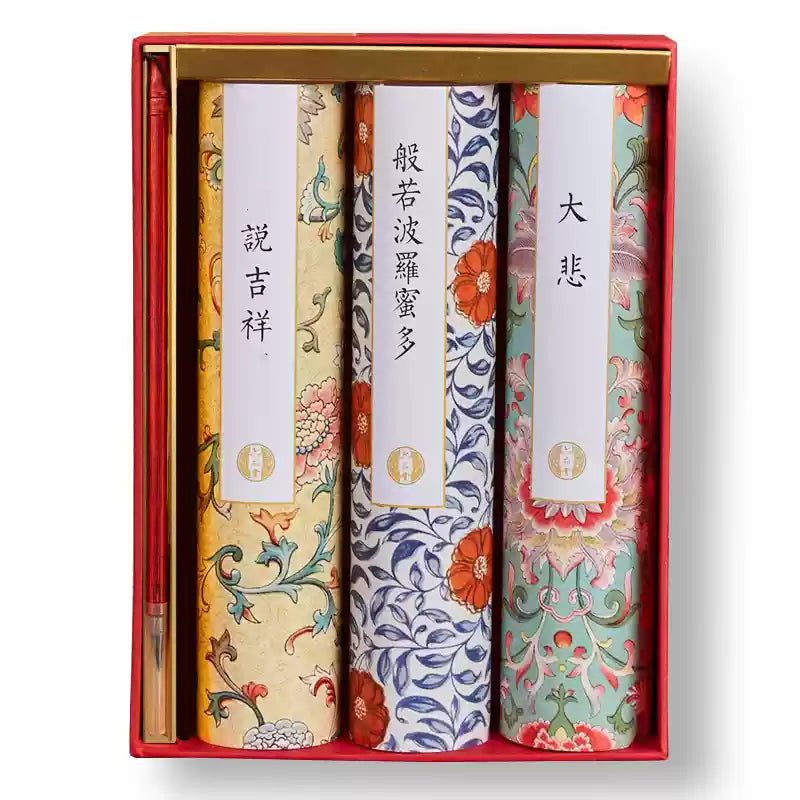 説吉祥
般若波羅蜜多
大悲